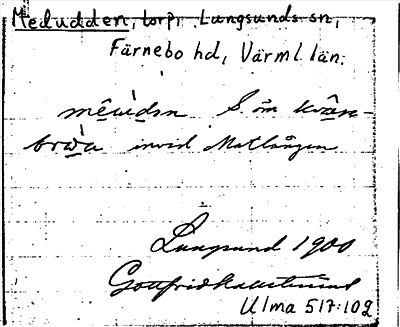 Medudden, torp, Lungsunds sn,
Färnebo hd, Värml. län.
mêùdǝn S. om kvân-
brωa invid Matlången
Lungsund 1900
Gottfrid Kallstenius
Ulma 517:102